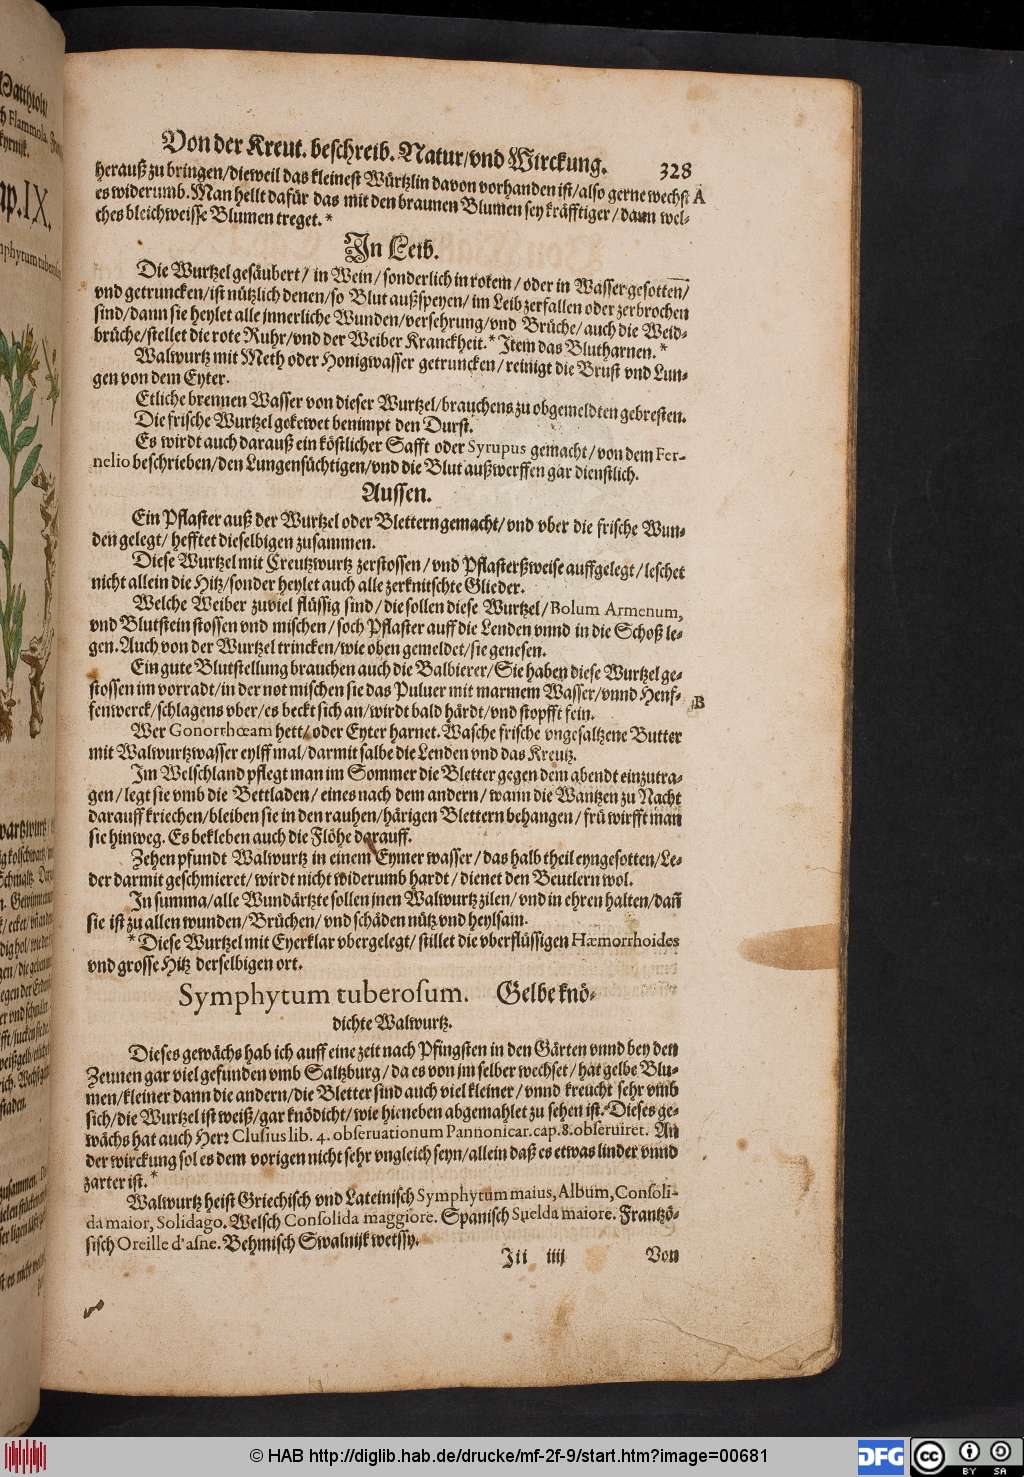 Von der Kreut. beschreib. Natur/vnd Wirckung. 328
herauß zu bringen/dieweil das kleinest Würtzlin davon vorhanden ist/also gerne wechst A
es widerumb. Man hellt dafür das mit den braunen Blumen sey kräfftiger/dann wel-
ches bleichweisse Blumen treget. *
In Leib.
Die Wurtzel gesäubert/ in Wein/sonderlich in rotem/oder in Wasser gesotten/
vnd getruncken/ist nützlich denen/so Blut außspeyen/im Leib zerfallen oder zerbrochen
sind/dann sie heylet alle innerliche Wunden/versehrung/vnd Brüche/auch die Weid-
brüche/stellet die rote Ruhr/vnd der Weiber Kranckheit. * Item das Blutharnen. *
Walwurtz mit Meth oder Honigwasser getruncken/reinigt die Brust vnd Lun-
gen von dem Eyter.
Etliche brennen Wasser von dieser Wurtzel/brauchens zu obgemeldten gebresten.
Die frische Wurtzel gekewet benimpt den Durst.
Es wirdt auch darauß ein köstlicher Safft oder Syrupus gemacht/von dem Fer-
nelio beschrieben/den Lungensüchtigen/vnd die Blut außwerffen gar dienstlich.
Aussen.
Ein Pflaster auß der Wurtzel oder Blettern gemacht/vnd vber die frische Wun-
den gelegt/ hefftet dieselbigen zusammen.
Diese Wurtzel mit Creutzwurtz zerstossen/vnd Pflasterßweise auffgelegt/leschet
nicht allein die Hitz/sonder heylet auch alle zerknitschte Glieder.
Welche Weiber zuviel flüssig sind/die sollen diese Wurtzel/Bolum Armenum,
vnd Blutstein stossen vnd mischen/soch Pflaster auff die Lenden vnnd in die Schoß le-
gen. Auch von der Wurtzel trincken/wie oben gemeldet/sie genesen.
Ein gute Blutstellung brauchen auch die Balbierer/Sie haben diese Wurtzel ge-
stossen im vorradt/in der not mischen sie das Puluer mit warmem Wasser/vnnd Henf- B
fenwerck/schlagens vber/es beckt sich an/wirdt bald härdt/vnd stopfft fein.
Wer Gonorrhœam hett/oder Eyter harnet. Wasche frische vngesaltzene Butter
mit Walwurtzwasser eylff mal/darmit salbe die Lenden vnd das Kreutz.
Im Welschland pflegt man im Sommer die Bletter gegen dem abendt einzutra-
gen/legt sie vmb die Bettladen/eines nach dem andern/wann die Wantzen zu Nacht
darauff kriechen/bleiben sie in den rauhen/härigen Blettern behangen/frü wirfft man
sie hinweg. Es bekleben auch die Flöhe darauff.
Zehen pfundt Walwurtz in einem Eymer wasser/das halb theil eyngesotten/Le-
der darmit geschmieret/wirdt nicht widerumb hardt/dienet den Beutlern wol.
In summa/alle Wundärtzte sollen jnen Walwurtz zilen/vnd in ehren halten/dañ
sie ist zu allen wunden/Brüchen/vnd schäden nütz vnd heylsam.
* Diese Wurtzel mit Eyerklar vbergelegt/stillet die vberflüssigen Hæmorrhoides
vnd grosse Hitz derselbigen ort.
Symphytum tuberosum. Gelbe knö-
dichte Walwurtz.
Dieses gewächs hab ich auff eine zeit nach Pfingsten in den Gärten vnnd bey den
Zeunen gar viel gefunden vmb Saltzburg/da es von jm selber wechset/hat gelbe Blu-
men/kleiner dann die andern/die Bletter sind auch viel kleiner/vnnd kreucht sehr vmb
sich/die Wurtzel ist weiß/gar knödicht/wie hieneben abgemahlet zu sehen ist.* Dieses ge-
wächs hat auch Herr Clusius lib. 4. obseruationum Pannonicar. cap. 8. obseruiret. An
der wirckung sol es dem vorigen nicht sehr vngleich seyn/allein daß es etwas linder vnnd
zarter ist. *
Walwurtz heist Griechisch vnd Lateinisch Symphytum maius, Album, Consoli-
da maior, Solidago. Welsch Consolida maggiore. Spanisch Suelda maiore. Frantzö-
sisch Oreille d'asne. Behmisch Swalnijk wetssy.
Jii iiij Von
© HAB http://diglib.hab.de/drucke/mf-2f-9/start.htm?image=00681
DFG
cc BY SA